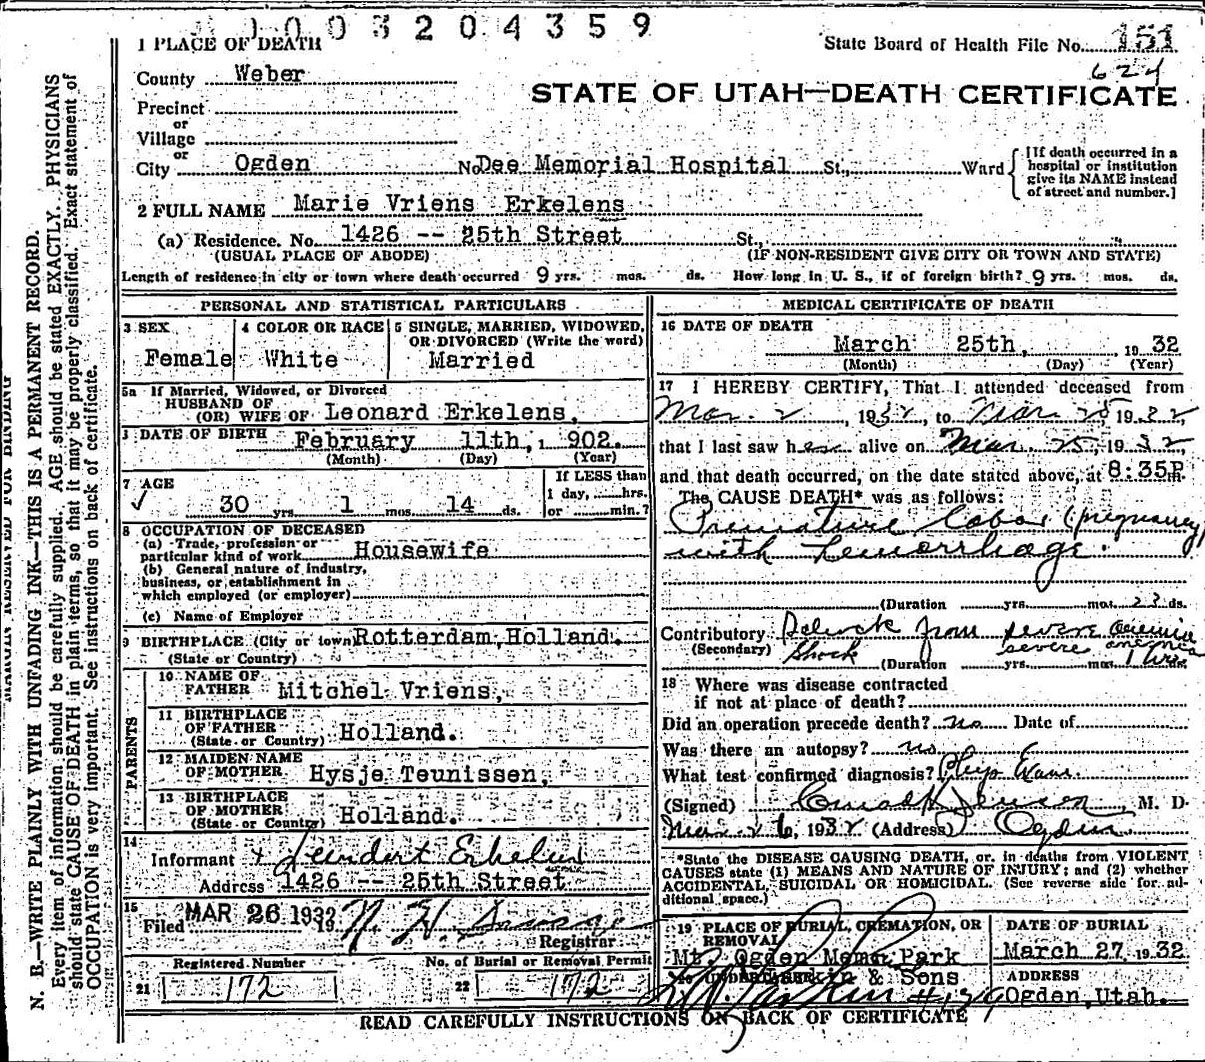 1003204359
1 PLACE OF DEATH
State Board of Health File No. 151
624
County Weber
STATE OF UTAH—DEATH CERTIFICATE
Precinct
or
Village
or
City Ogden No. Dee Memorial Hospital St., Ward
[If death occurred in a hospital or institution give its NAME instead of street and number.]
2 FULL NAME Marie Vriens Erkelens
(a) Residence. No. 1426 -- 25th Street St.,
(USUAL PLACE OF ABODE) (IF NON-RESIDENT GIVE CITY OR TOWN AND STATE)
Length of residence in city or town where death occurred 9 yrs. mos. ds. How long in U. S., if of foreign birth? 9 yrs. mos. ds.
PERSONAL AND STATISTICAL PARTICULARS
3 SEX
Female
4 COLOR OR RACE
White
5 SINGLE, MARRIED, WIDOWED,
OR DIVORCED (Write the word)
Married
5a If Married, Widowed, or Divorced
HUSBAND OF
(OR) WIFE OF Leonard Erkelens.
DATE OF BIRTH February 11th, 1902.
(Month) (Day) (Year)
7 AGE
✓ 30 yrs. 1 mos 14 ds.
If LESS than
1 day, hrs.
or min.?
8 OCCUPATION OF DECEASED
(a) Trade, profession or
particular kind of work Housewife
(b) General nature of industry,
business, or establishment in
which employed (or employer)
(c) Name of Employer
9 BIRTHPLACE (City or town) Rotterdam, Holland.
(State or Country)
PARENTS
10 NAME OF
FATHER Mitchel Vriens,
11 BIRTHPLACE
OF FATHER
(State or Country) Holland.
12 MAIDEN NAME
OF MOTHER Hysje Teunissen,
13 BIRTHPLACE
OF MOTHER
(State or Country) Holland.
14
Informant Leendert Erkelens
Address 1426 -- 25th Street
15
Filed MAR 26 1932 19 N. H. Savage
Registrar
Registered Number
21 172
No. of Burial or Removal Permit
22 172
MEDICAL CERTIFICATE OF DEATH
16 DATE OF DEATH
March 25th, 1932
(Month) (Day) (Year)
17 I HEREBY CERTIFY, That I attended deceased from
Mar. 2, 1932, to Mar. 25, 1932
that I last saw her alive on Mar. 25, 1932,
and that death occurred, on the date stated above, at 8:35P m.
The CAUSE DEATH* was as follows:
Premature labor (pregnancy)
with hemorrhage.
(Duration yrs. mos. 23 ds.
Contributory from severe anemia
(Secondary) Shock severe anemia
(Duration yrs. mos. 1 wk
18 Where was disease contracted
if not at place of death?
Did an operation precede death? no Date of
Was there an autopsy? no
What test confirmed diagnosis? Phys Exam.
(Signed) Conrad H Jenson, M. D.
Mar. 26, 1932 (Address) Ogden.
*State the DISEASE CAUSING DEATH, or, in deaths from VIOLENT
CAUSES state (1) MEANS AND NATURE OF INJURY; and (2) whether
ACCIDENTAL, SUICIDAL OR HOMICIDAL. (See reverse side for additional space.)
19 PLACE OF BURIAL, CREMATION, OR
REMOVAL
Mt. Ogden Memo. Park
DATE OF BURIAL
March 27, 1932
20 UNDERTAKER
Larkin & Sons
ADDRESS
Ogden, Utah.
READ CAREFULLY INSTRUCTIONS ON BACK OF CERTIFICATE
MARGIN RESERVED FOR BINDING
N. B.—WRITE PLAINLY WITH UNFADING INK—THIS IS A PERMANENT RECORD.
Every item of information should be carefully supplied. AGE should be stated EXACTLY. PHYSICIANS
should state CAUSE OF DEATH in plain terms, so that it may be properly classified. Exact statement of
OCCUPATION is very important. See instructions on back of certificate.